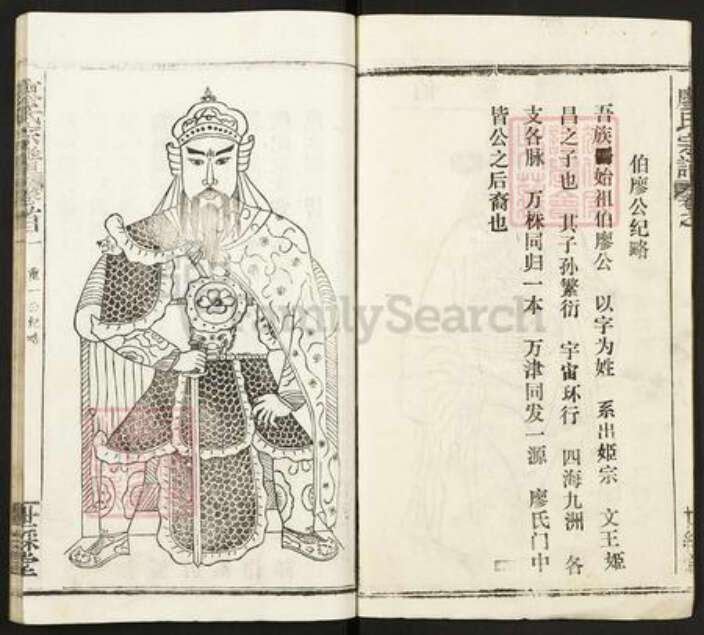 廖氏宗譜
伯廖公纪略
吾族 始祖伯廖公 以字为姓 系出姬宗 文王姬
昌之子也 其子孙繁衍 宇宙环行 四海九洲 各
支各脉 万株同归一本 万津同发一源 廖氏门中
皆公之后裔也
世綵堂
氏宗譜
世綵堂
FamilySearch